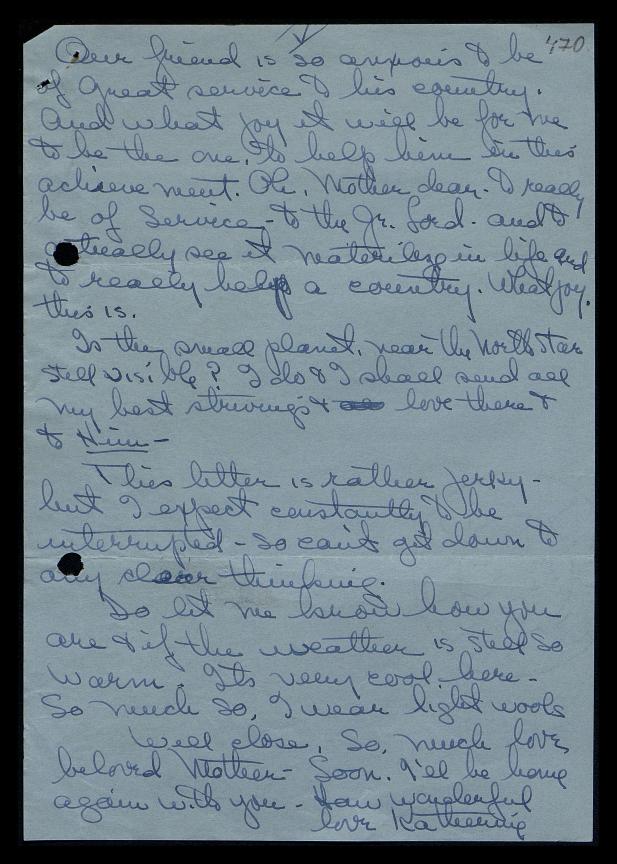 470
Our friend is so anxious to be
of great service to his country.
And what joy it will be for me
to be the one, to help him in this
achievement. Oh, Mother dear. To really
be of Service - to the Jr. Lord. and to
actually see it materilize in life and
to really help a country. What joy,
this is.
Is the small planet, near the North Star
still visible? I do & I shall send all
my best strivings & love there &
to Him -
This letter is rather jerky -
but I expect constantly to be
interrupted - so can't get down to
any clear thinking.
Do let me know how you
are & if the weather is still so
warm. Its very cool here -
So much so, I wear light wools
Will close. So, much love,
beloved Mother - Soon. I'll be home
again with you - How wonderful
love Katherine